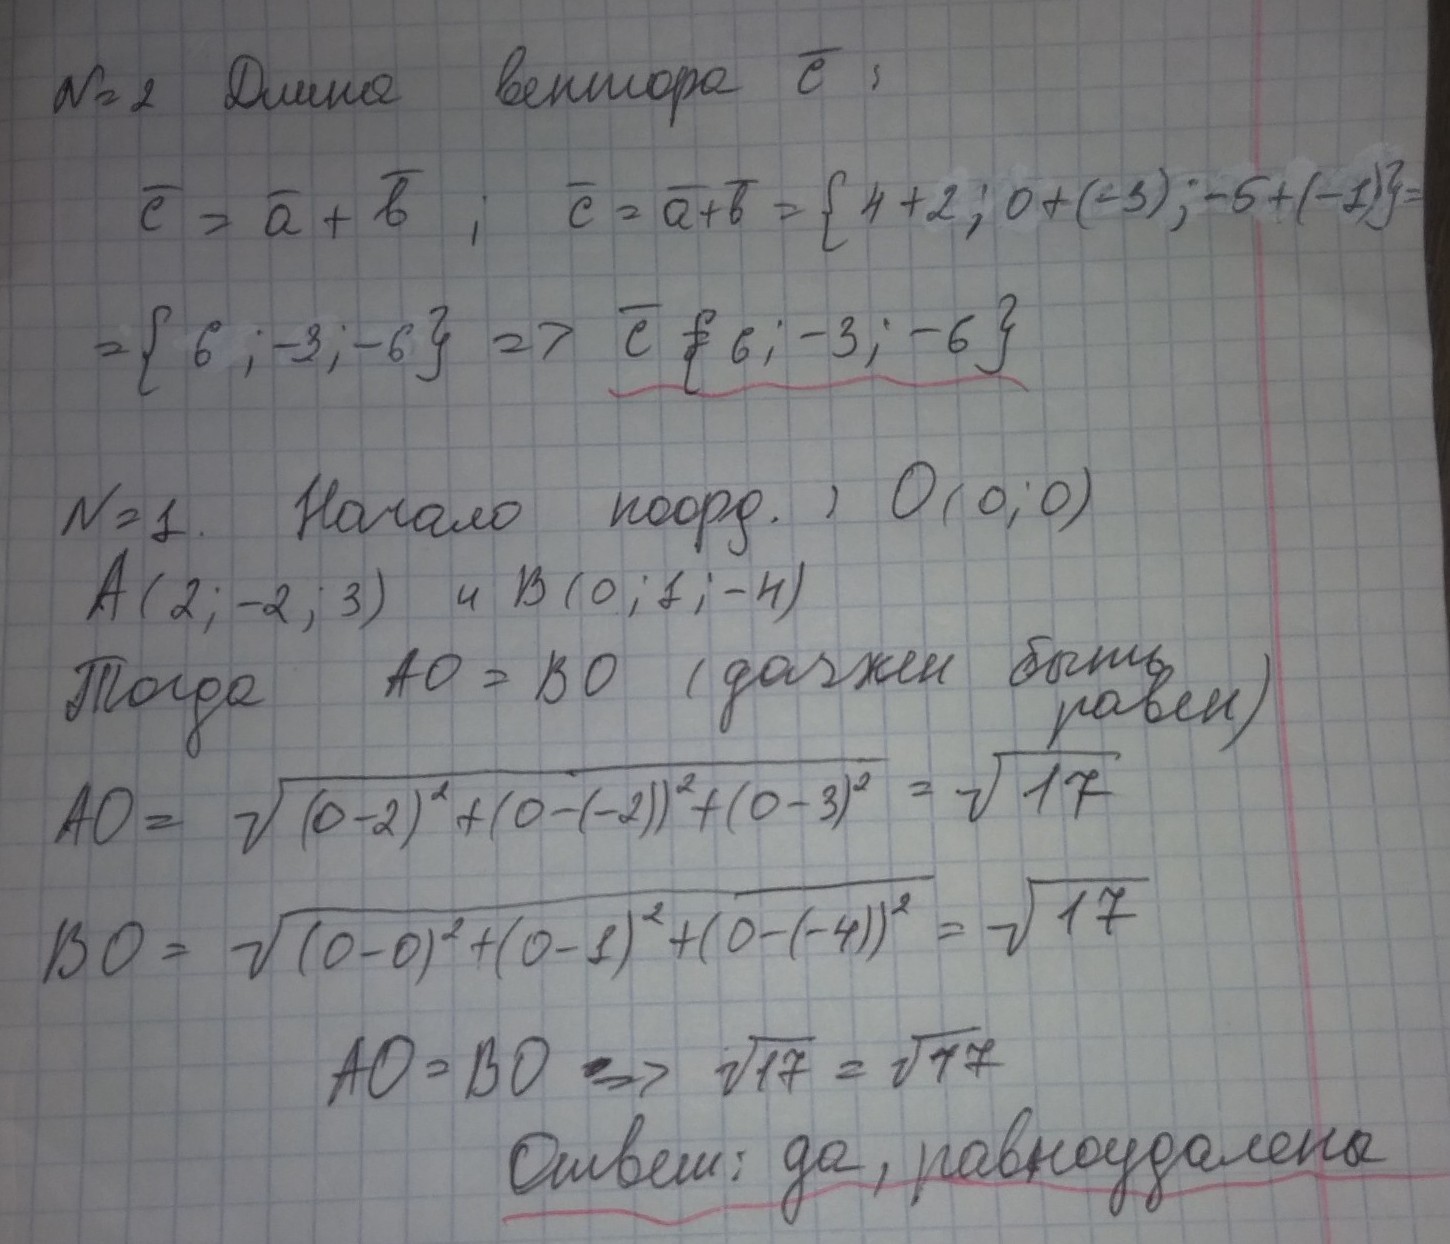 N=2 Длина вектора c̅ :
c̅ = a̅ + b̅ ; c̅ = a̅+b̅ = {4+2; 0+(-3); -5+(-1)}=
={6; -3; -6} => c̅ {6; -3; -6}
N=1. Начало коорд. : O(0;0)
A(2; -2; 3) и B(0; 1; -4)
Тогда AO = BO (должен быть
равен)
AO = √((0-2)²+(0-(-2))²+(0-3)²) = √17
BO = √((0-0)²+(0-1)²+(0-(-4))²) = √17
AO=BO => √17 = √17
Ответ: да, равноудалена